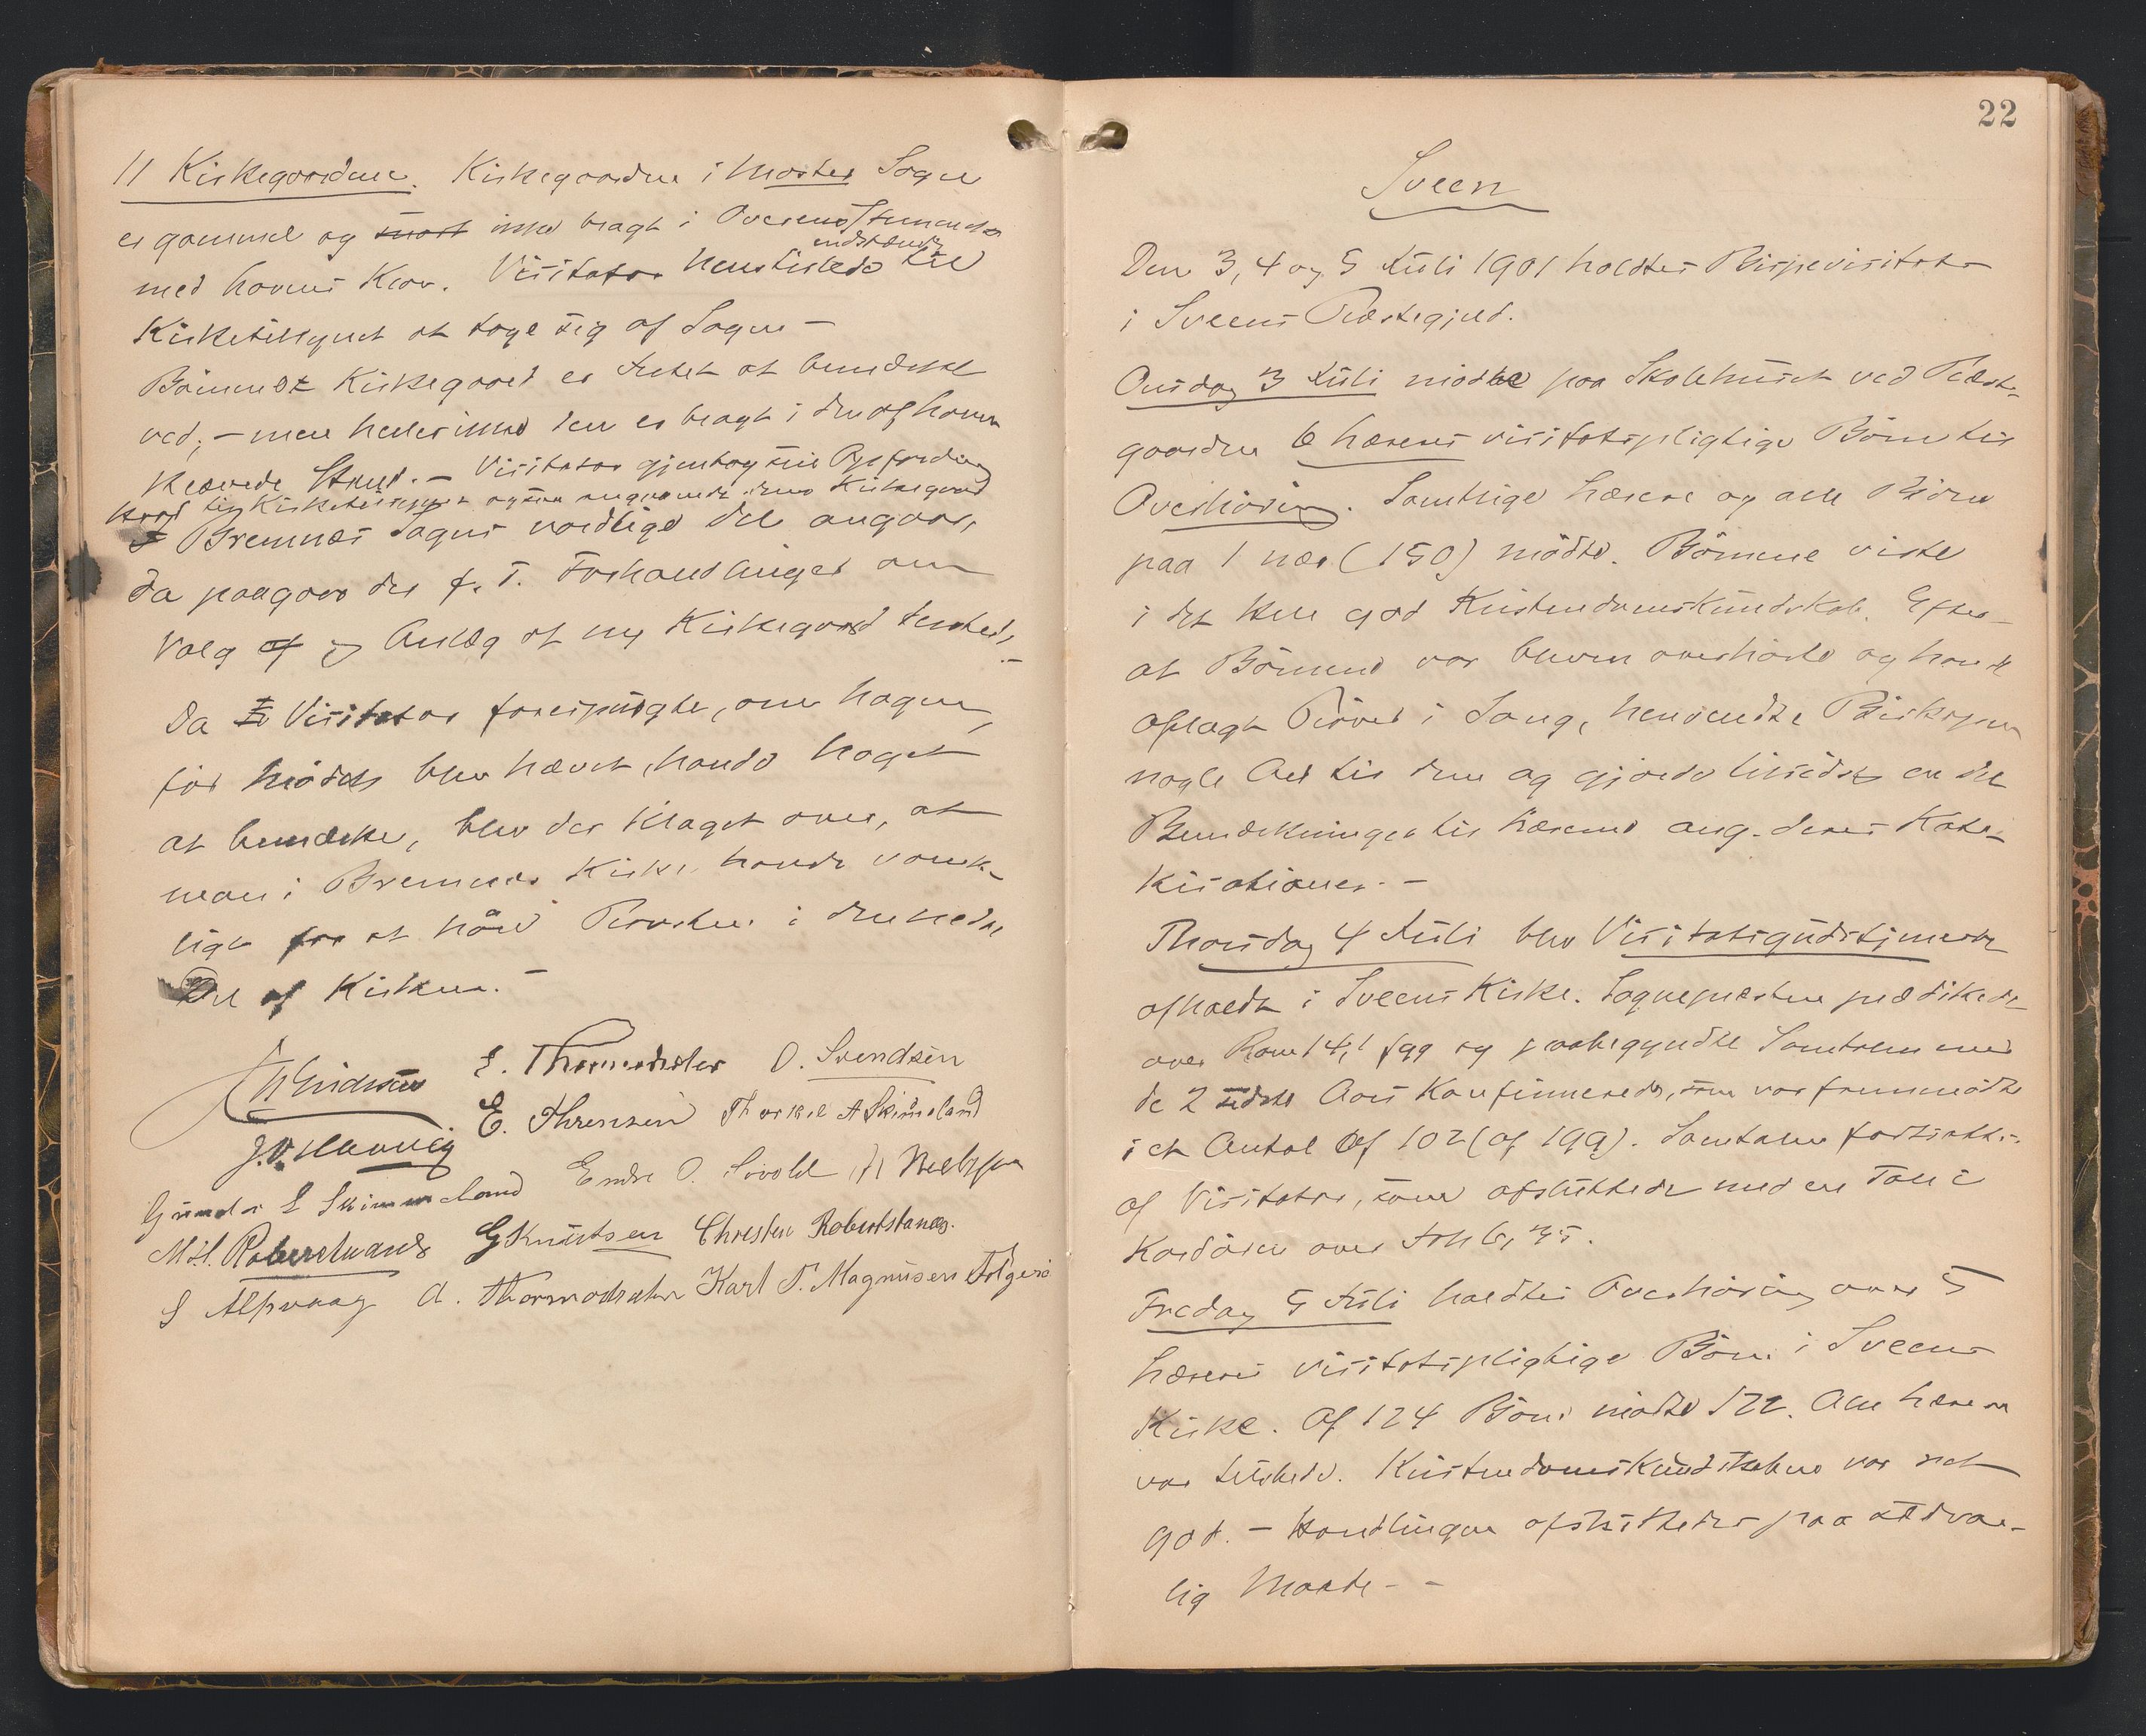 11 Kirkegaardene. Kirkegaarden i Moster Sogn
er gammel og ikke bragt i Overensstemmelse
med Lovens Krav. Visitator henstillede indstændig til
Kirketilsynet at tage sig af Sagen –
Bømmels Kirkegaard er Intet at bemærke
ved, – men heller ikke den er bragt i den af Loven
krævede Stand. – Visitator gjentog sin Opfordring
til Kirketilsynet ogsaa angaaende denne Kirkegaard
Hvad Bremnæs Sogns nordlige Del angaar,
da paagaar der f. T. Forhandlinger om
Valg og Anlæg af ny Kirkegaard dersteds. –
Da Visitator forespurgte, om Nogen,
før Mødet blev hævet, havde Noget
at bemærke, blev der klaget over, at
man i Bremnes Kirke havde vanske-
ligt for at høre Præsten i den nedre
Del af Kirken. –
E. Thormodsæter O. Svendsen
E. Thrensen Thorkel A Skimeland
J. V. Haavig
Gunder E Skimmeland Endre O. Sivold H Nielssen
M. H. Robberstvands G Knutsen Christen Robertstanæs.
S Alpvaag A. Thormodsæter Karl T. Magnusen Folgerø
22
Sveen
Den 3, 4 og 5 Juli 1901 holdtes Bispevisitats
i Sveens Præstegjeld.
Onsdag 3 Juli mødte paa Skolehuset ved Præste-
gaarden 6 Læreres visitatspligtige Børn til
Overhøring. Samtlige Lærere og alle Børn
paa 1 nær (150) mødte. Børnene viste
i det Hele god Kristendomskundskab. Efter
at Børnene var bleven overhørte og havde
aflagt Prøver i Sang, henvendte Biskopen
nogle Ord til dem og gjorde tilsidst en del
Bemærkninger til Lærerne ang. deres Kate-
kisationer. –
Thorsdag 4 Juli blev Visitatsgudstjeneste
afholdt i Sveens Kirke. Sognepræsten prædikede
over Rom 14,1 fgg og paabegyndte Samtalen med
de 2 sidste Aars Konfirmerede, som var fremmødte
i et Antal af 102 (af 199). Samtalen fortsattes
af Visitator, som afsluttede med en Tale i
Kordøren over Joh 6, 35.
Fredag 5 Juli holdtes Overhøring over 5
Læreres visitatspligtige Børn i Sveens
Kirke. Af 124 Børn mødte 122. Alle Lærerne
var tilstede. Kristendomskundskaben var ret
god. – Handlingen afsluttedes paa sædvan-
lig Maade – –